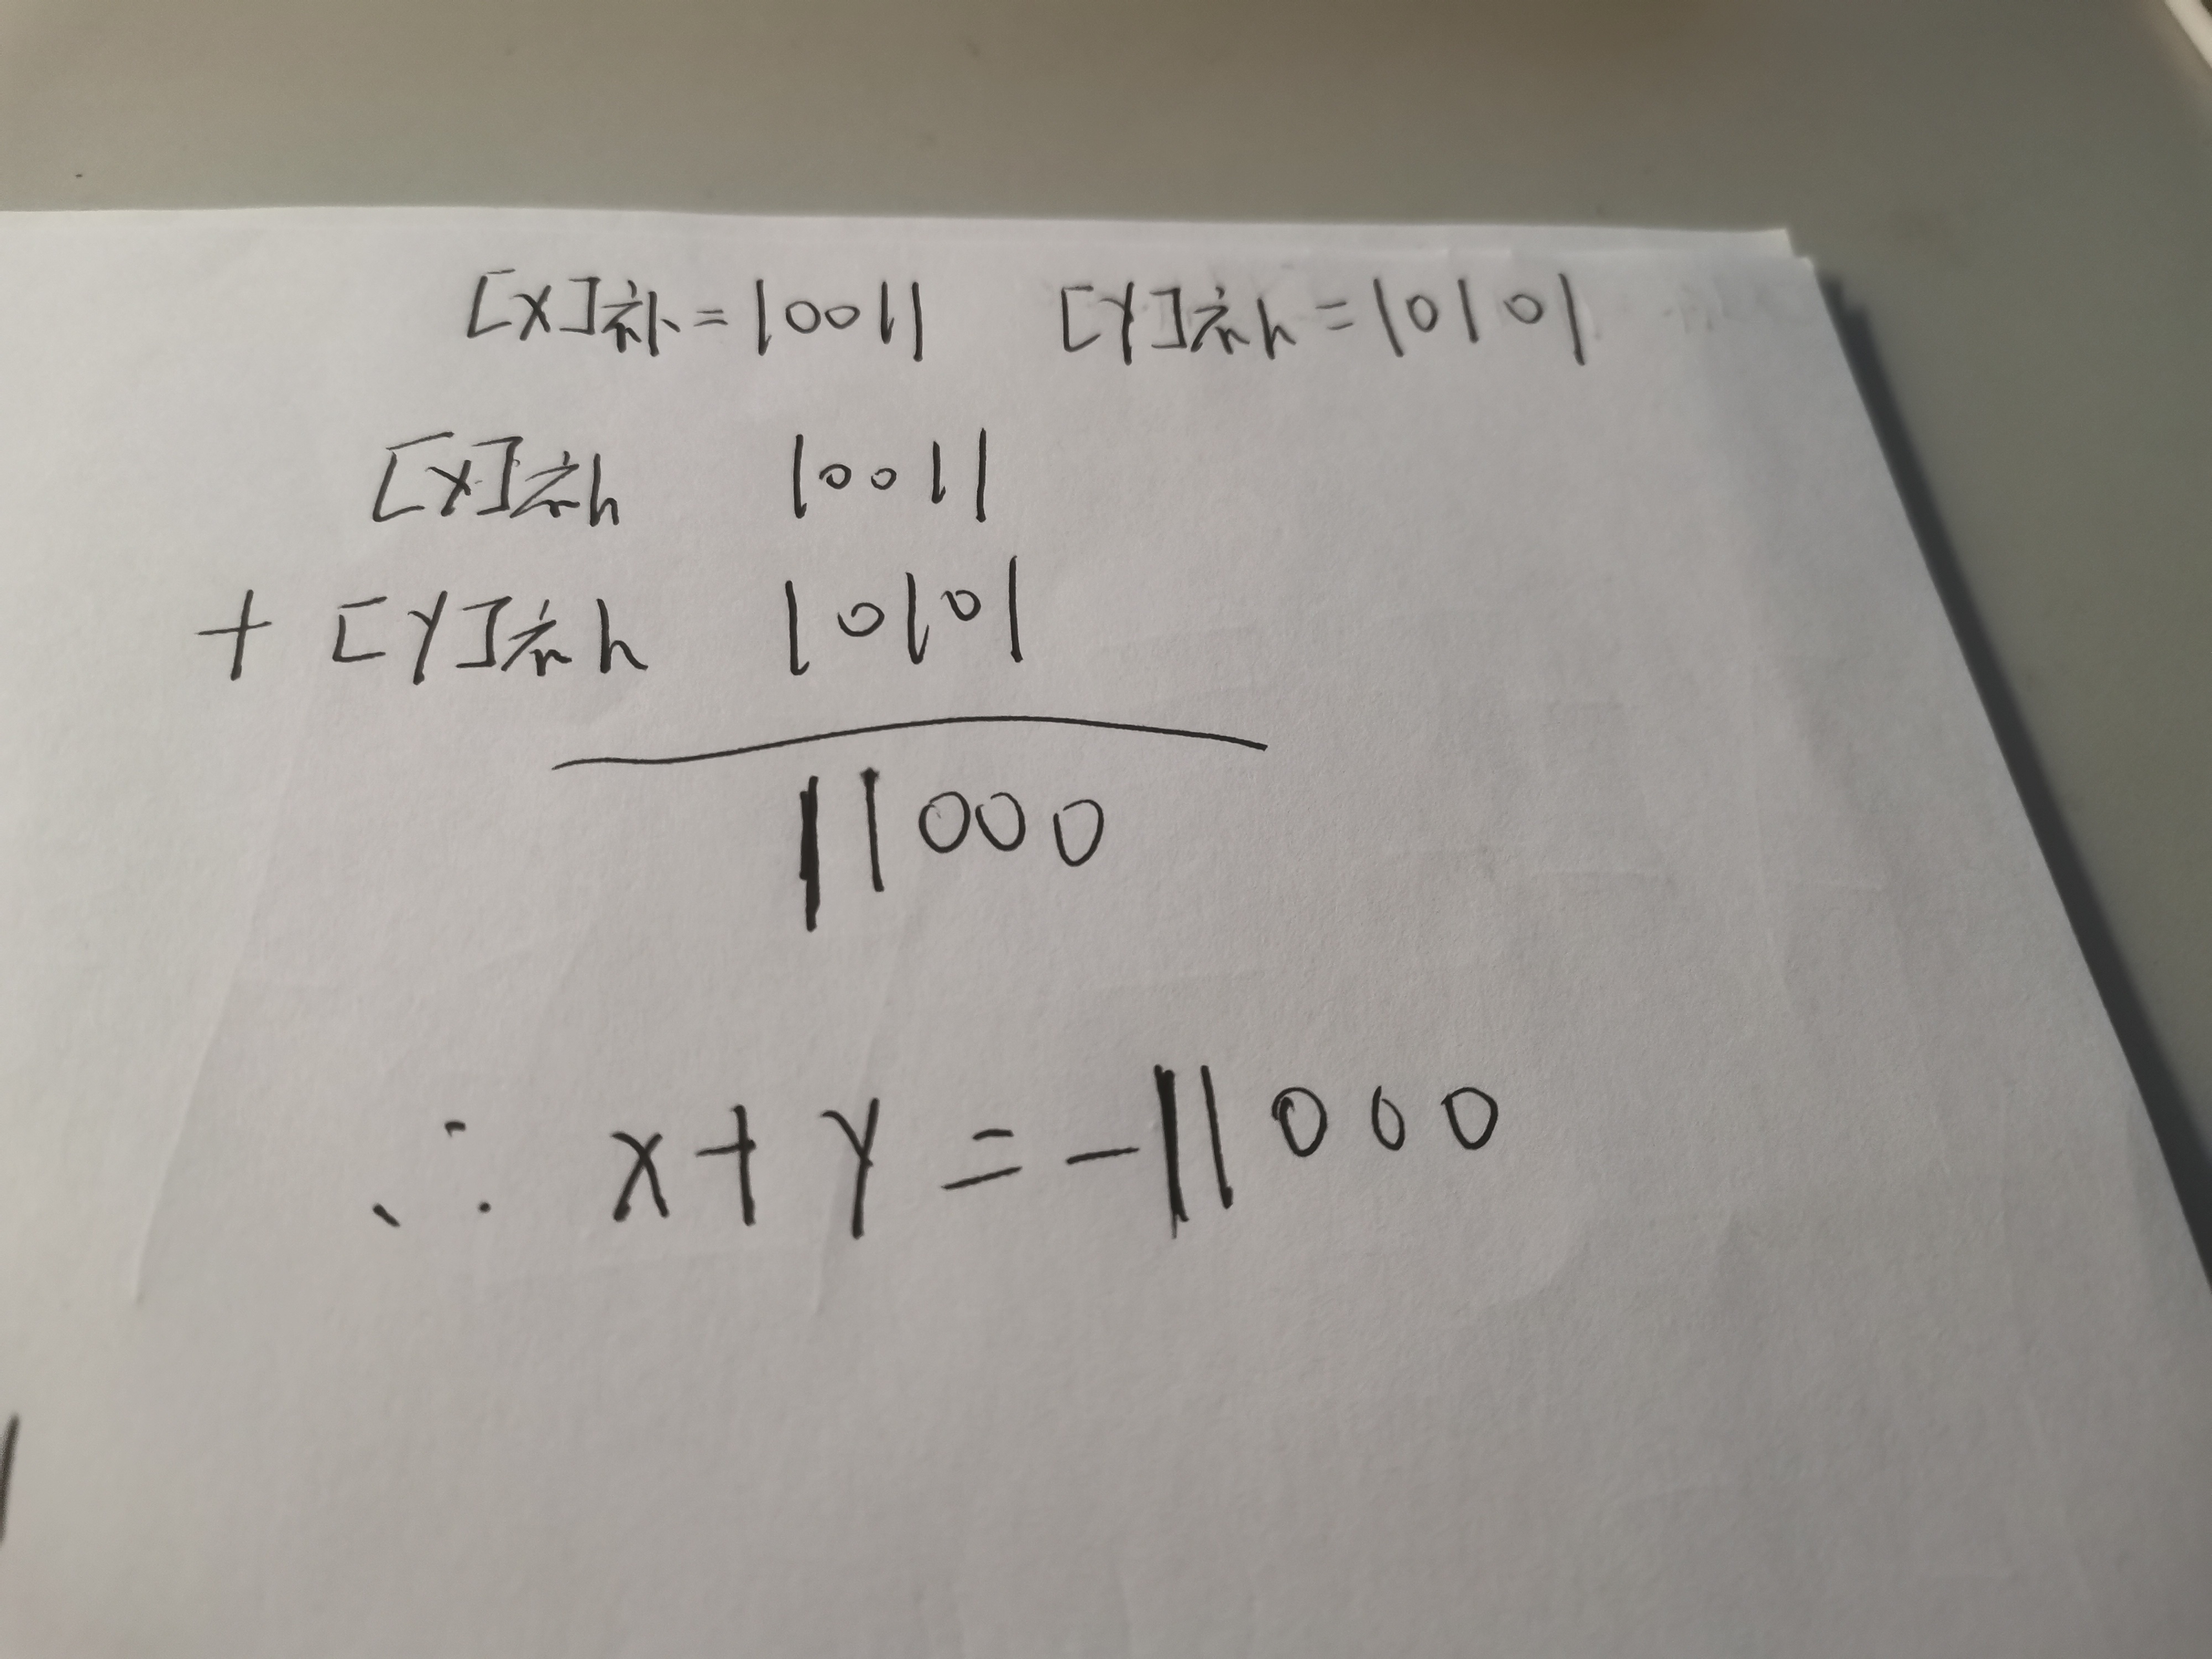 [X]补=10011 [Y]补=10101
[X]补 10011
+ [Y]补 10101
11000
∴ x+y=-11000